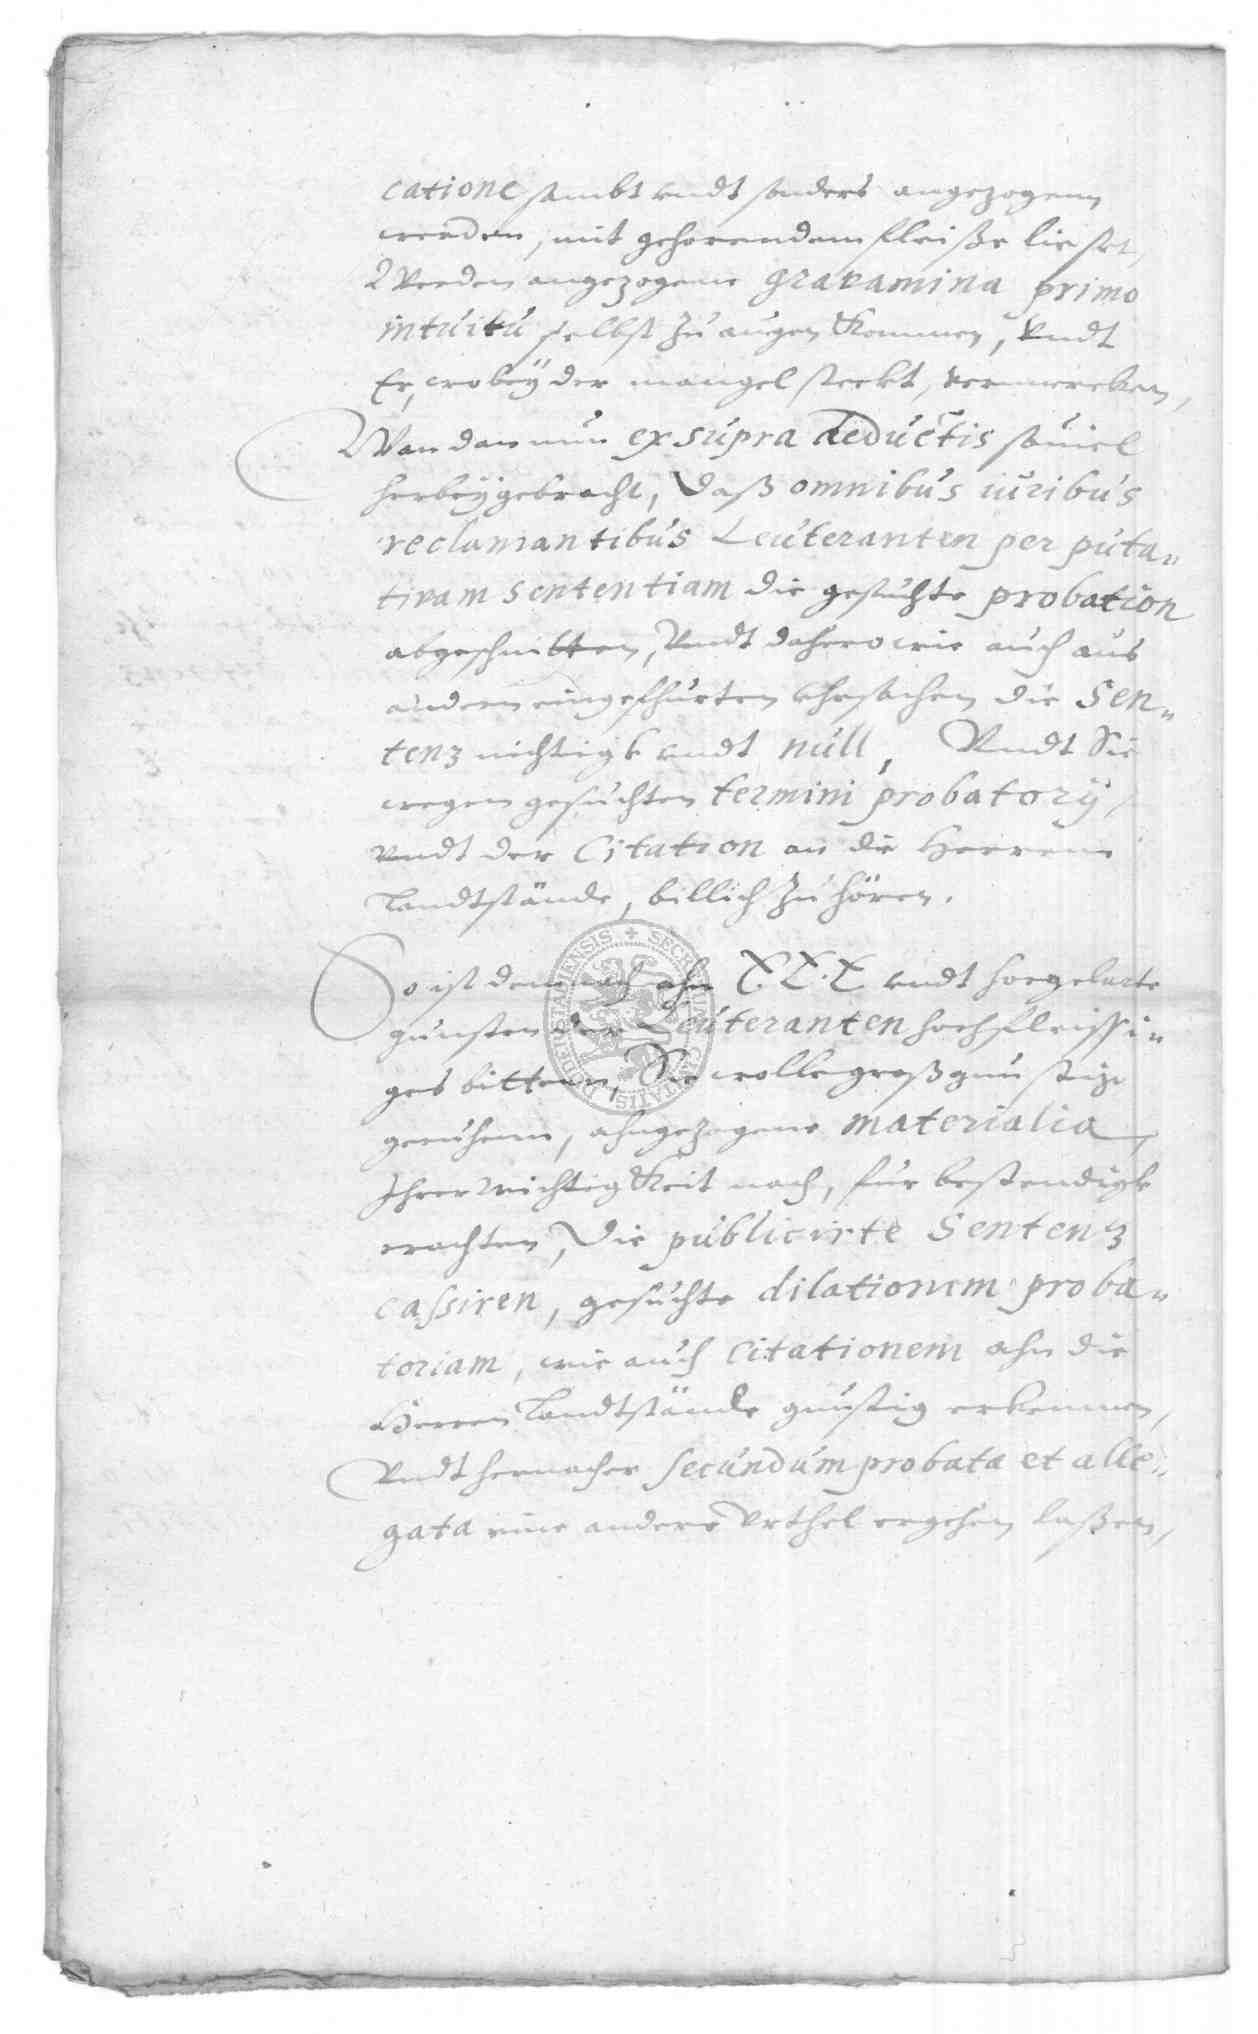 catione sambt undt sonders angezogenn
werden, mit gehorendem fleiße lieset,
Werden angezogene gravamina primo
intuitu selbst zu augen kommen, Undt
Er, wobeÿ der mangel steckt, vermercken,
Wan dan nun ex supra deductis souiel
herbeÿgebracht, Daß omnibus iuribus
reclamantibus Leuteranten per puta„
tivam sententiam die gesuchte probation
abgeschnitten, Undt dahero wie auch aus
andern eingefhurten Uhrsachen die Sen„
tenz nichtigk undt null, Undt Sie
wegen gesuchten termini probatorÿ,
Undt der Citation an die Herrenn
Landtstände, billich zu hören.
So ist demnach ahn E. E. E. undt hoegelarte
gunsten der Leuteranten hochfleissi„
ges bittenn, Sie wolle großgunstige
geruhenn, ahngezogene materialia,
Ihrer Wichtigkeit nach, fur bestendigk
erachten, Die publicirte Sentenz
cassiren, gesuchte dilationem proba„
toriam, wie auch Citationem ahn die
Herren Landtstände gunstig erkennen,
Undt hernacher secundum probata et alle„
gata eine andere Urthel ergehen laßen,